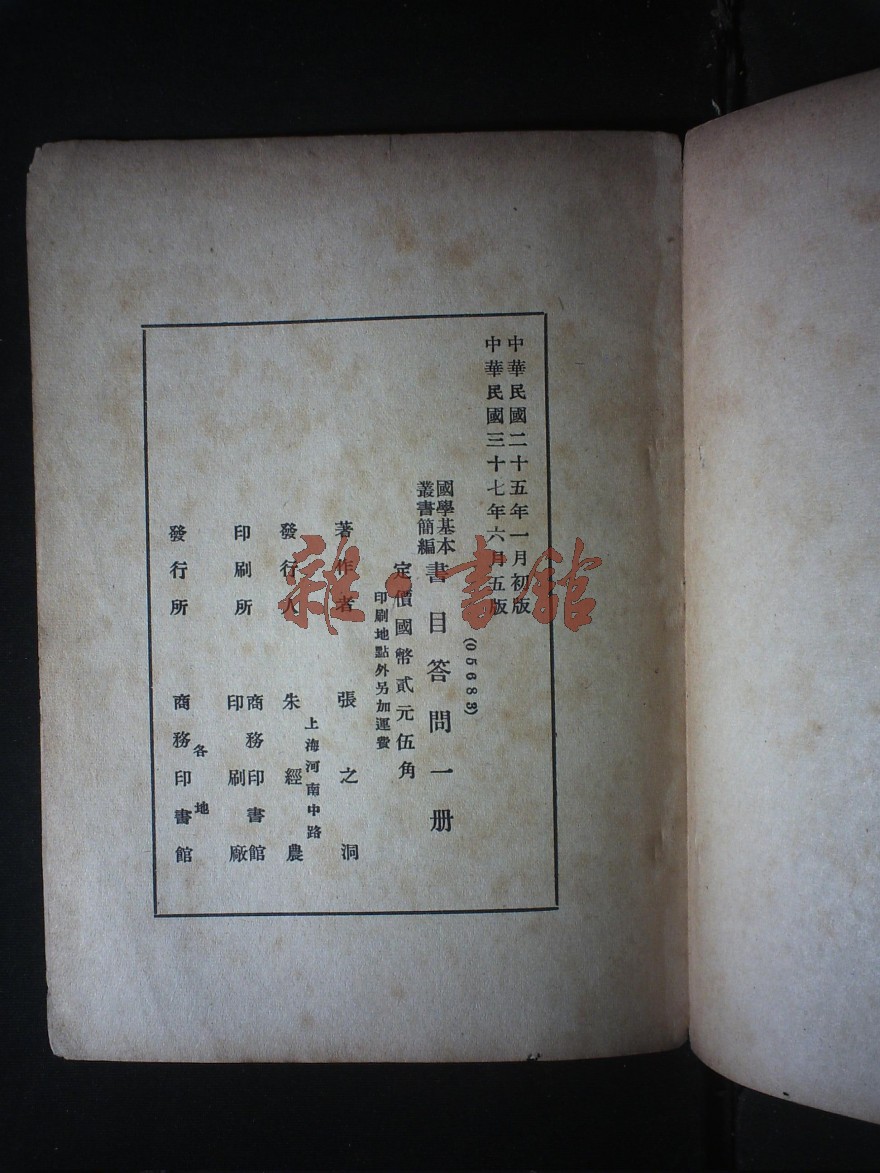 中華民國二十五年一月初版
中華民國三十七年六月五版
(05683)
國學基本
叢書簡編
書目答問一册
定價國幣貳元伍角
印刷地點外另加運費
著作者 張之洞
上海河南中路
發行人 朱經農
印刷所 商務印書館
印刷廠
各地
發行所 商務印書館
雜·書館